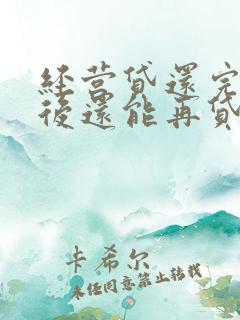 经营贷還完
後還能再贷
卡希尔
未经同意禁止转载